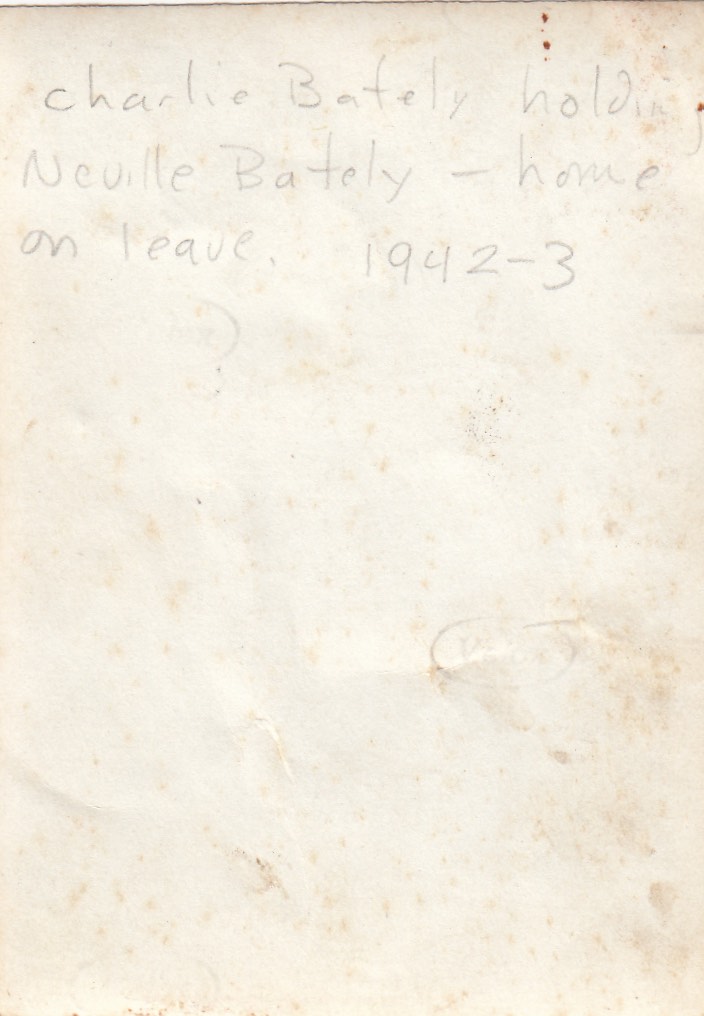 Charlie Bately holding
Neville Bately – home
on leave. 1942-3